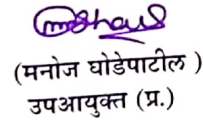 (मनोज घोडेपाटील )
उपआयुक्त (प्र.)